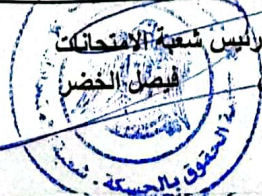 رئيس شعبة الامتحانات
فيصل الخضر
الحقوق بالحسكة - شعبة